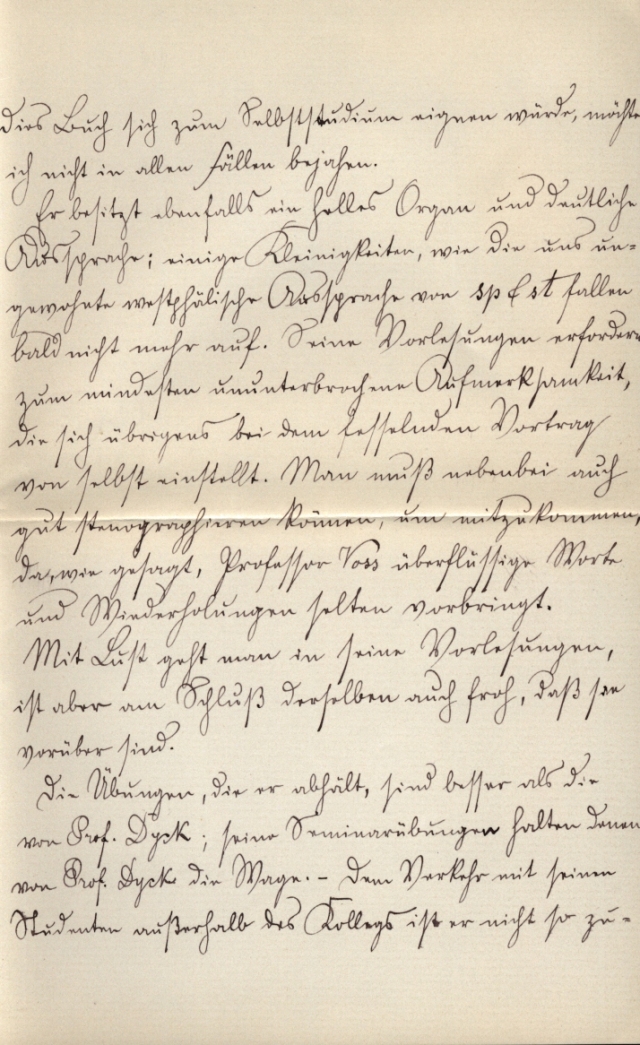 dies Buch sich zum Selbststudium eignen würde, möchte
ich nicht in allen Fällen bejahen.
Er besitzt ebenfalls ein helles Organ und deutliche
Aussprache; einige Kleinigkeiten, wie die uns un-
gewohnte westphälische Aussprache von sp & st fallen
bald nicht mehr auf. Seine Vorlesungen erfordern
zum mindesten ununterbrochene Aufmerksamkeit,
die sich übrigens bei dem fesselnden Vortrag
von selbst einstellt. Man muß nebenbei auch
gut stenographieren können, um mitzukommen,
da, wie gesagt, Professor Voss überflüssige Worte
und Wiederholungen selten vorbringt.
Mit Lust geht man in seine Vorlesungen,
ist aber am Schluß derselben auch froh, daß sie
vorüber sind.
Die Übungen, die er abhält, sind besser als die
von Prof. Dyck; seine Seminarübungen halten denen
von Prof. Dyck die Wage. – Dem Verkehr mit seinen
Studenten außerhalb des Kollegs ist er nicht so zu-